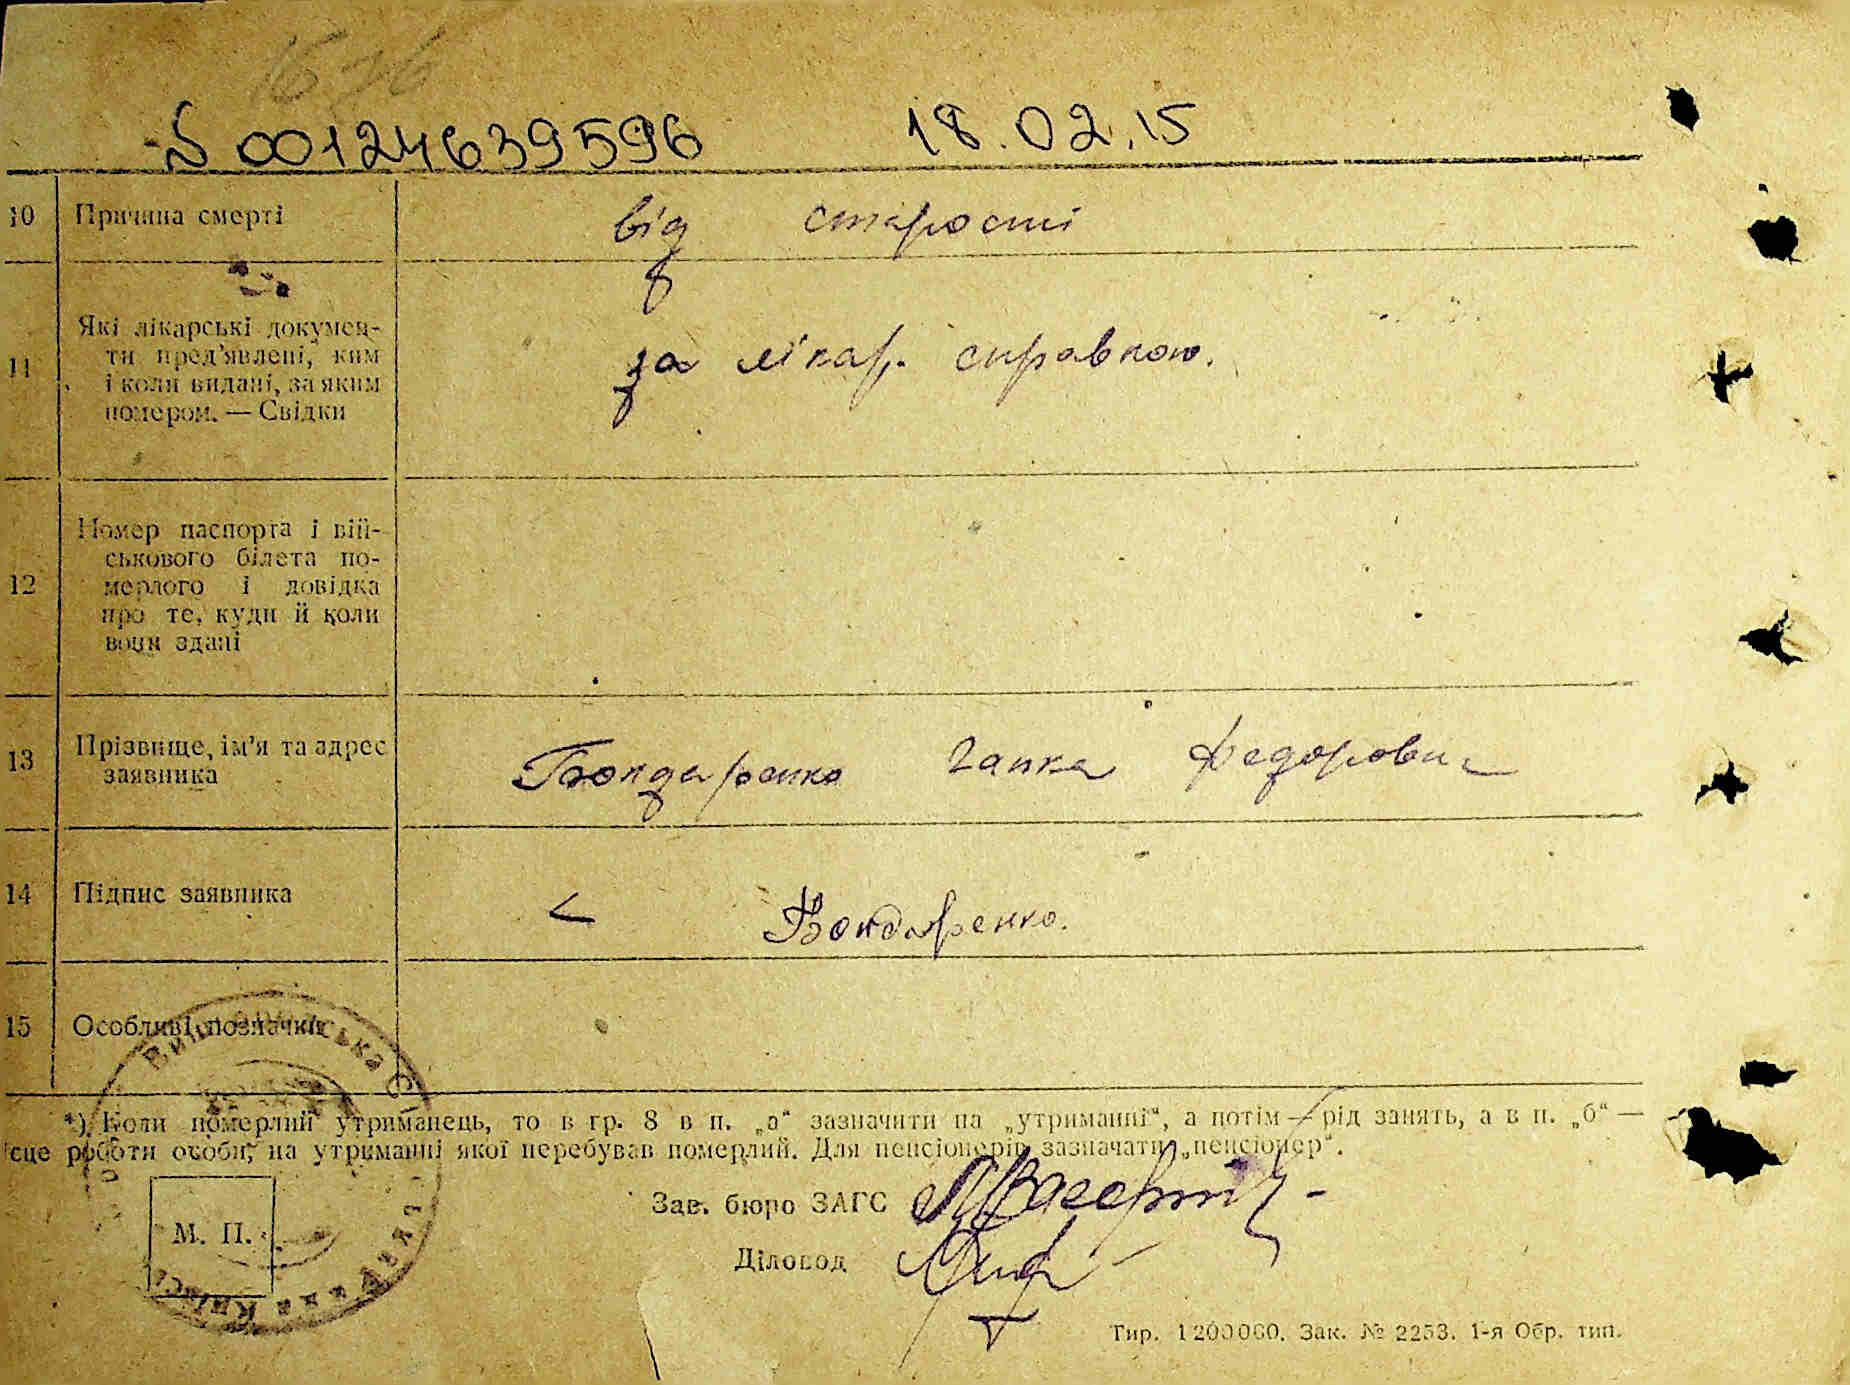 676
S 00124639596 18.02.15
10 Причина смерті від старості
11 Які лікарські докумен-
ти пред'явлені, ким
і коли видані, за яким
номером. — Свідки
за лікар. справкою.
12 Номер паспорта і вій-
ськового білета по-
мерлого і довідка
про те, куди й коли
вони здані
13 Прізвище, ім'я та адрес
заявника
Бондаренко Ганка Федоровн
14 Підпис заявника Бондаренко.
15 Особливі позначки
*) Коли померлий утриманець, то в гр. 8 в п. „а“ зазначити на „утриманні“, а потім — рід занять, а в п. „б“ —
ісце роботи особи, на утриманні якої перебував померлий. Для пенсіонерів зазначати „пенсіонер“.
Зав. бюро ЗАГС
М. П.
Діловод
Тир. 1200000. Зак. № 2253. 1-я Обр. тип.